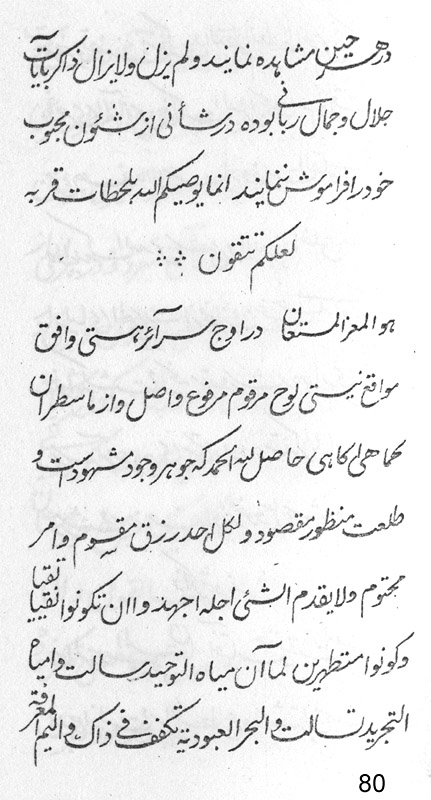 در هر حین مشاهده نمایند و لم یزل و لا یزال ذاکر بآیات
جلال و جمال ربانی بوده در شأنی از شئون محبوب
خود را فراموش ننمایند انما یوصیکم الله بلحظات قربه
لعلکم تتقون
هو المعز المستعان در اوج سرآئر هستی وافق
مواقع نیستی لوح مرقوم مرفوع واصل و از ما سطران
کماهی اکاهی حاصل لله الحمد که جوهر وجود مشهود است و
طلعت منظور مقصود و لکل احد رزق مقسوم و امر
محتوم و لا یقدم الشئی اجله اجهدوا ان تکونوا نقیا تقیا
و کونوا متطهرین لما آن میاه التوحید سالت و امیاه
التجرید تسالت و البحر العبودیة تکفف فی ذاک و الیم المعرفة
80